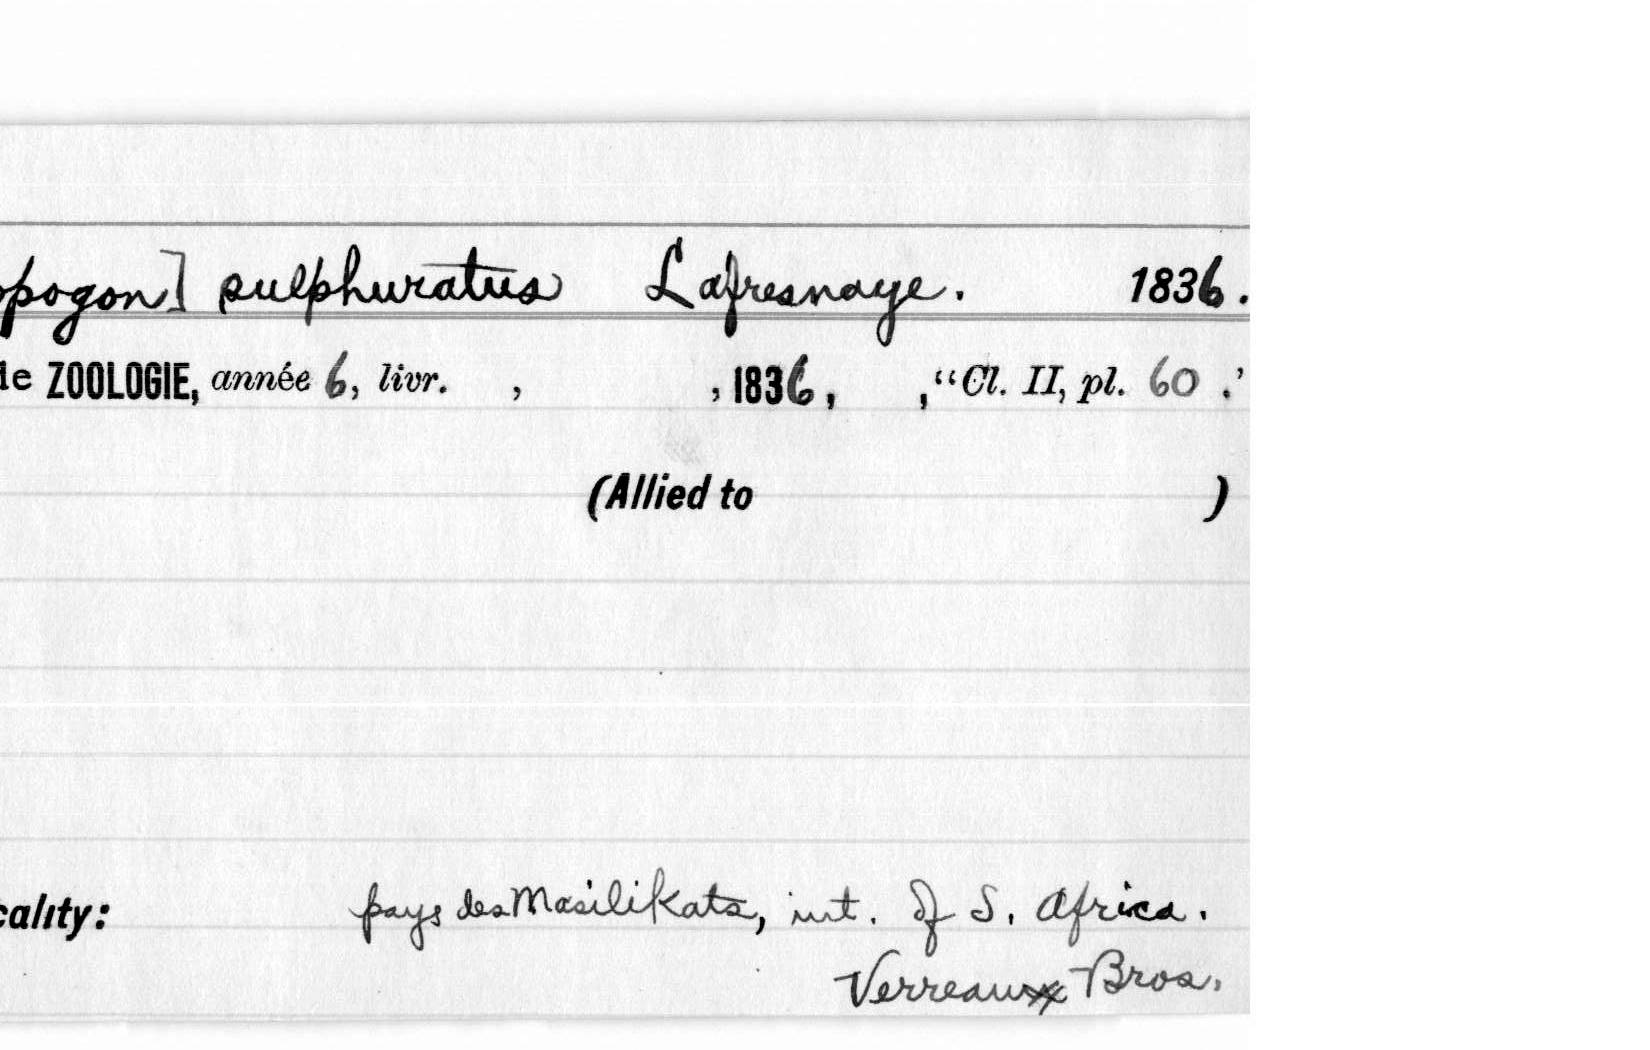 opogon] sulphuratus Lafresnaye. 1836.
de ZOOLOGIE, année 6, livr. , , 1836, , "Cl. II, pl. 60 .'
(Allied to )
cality: pays des Masilikats, int. of S. Africa.
Verreaux Bros.